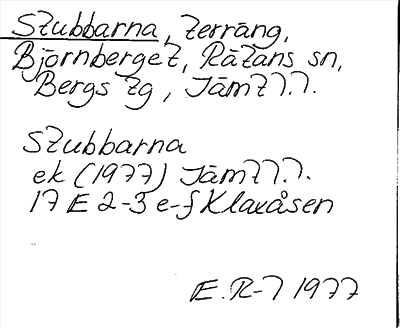 Stubbarna, terräng,
Björnberget, Rätans sn,
Bergs tg, Jämtl.l.
Stubbarna
ek (1977) Jämtl.l.
17 E 2-3 e-f Klaxåsen
E. R-l 1977